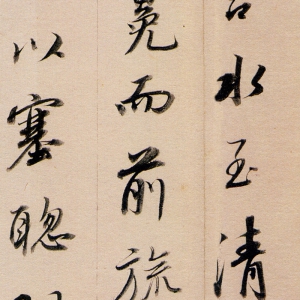 水至清
冕而前旒
以塞聦